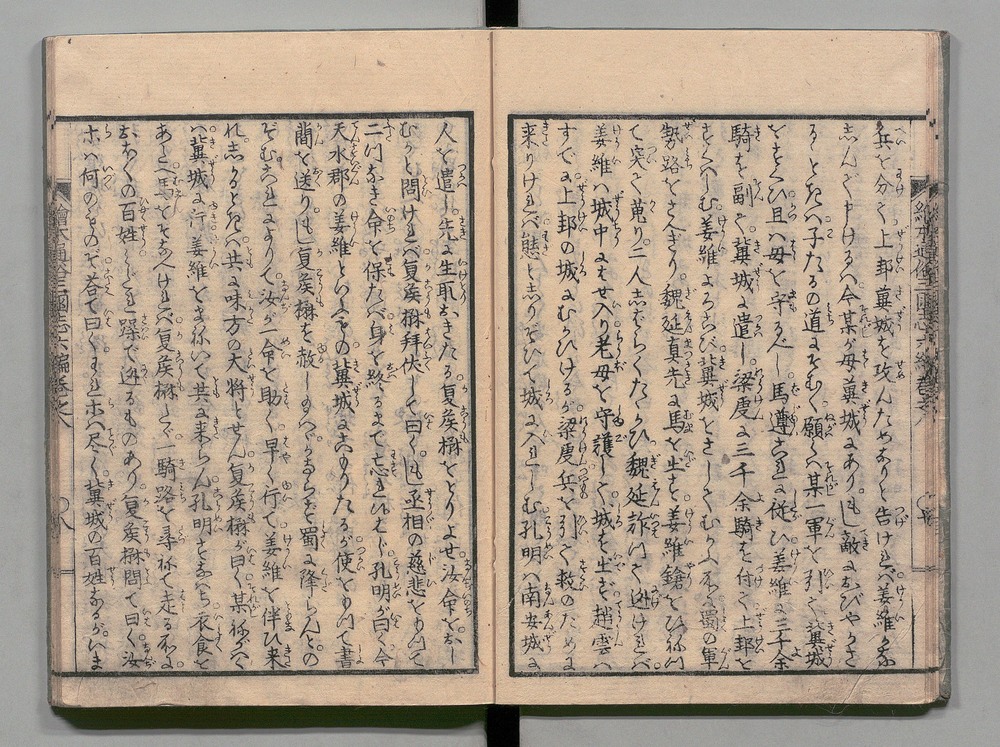 兵を分て上邽冀城を攻んためなりと告けれバ姜維
しんで申けるハ今某が母冀城にあり。もし敵におびやかさ
るゝときハ子たるの道にそむく願くハ某一軍を引て冀城
をすくひ且ハ母を守るべし馬遵これに従ひ姜維に三千余
騎を副て冀城に遣し梁虔に三千余騎を付て上邽を
すくハしむ姜維よろこび冀城をさしてむかふ所に蜀の軍
勢路をさへぎり魏延真先に馬を出す姜維鎗をひねつ
て突て蒐り二人しバらくたゝかひ魏延詐つて逃けれバ
姜維ハ城中にはせ入り老母を守護して城を出ず趙雲ハ
すでに上邽の城にむかひけるが梁虔兵を引て救のために
来りけれバ態としりぞひて城に入しむ孔明ハ南安城に
人を遣し先に生取おきたる夏侯楙をとりよせ汝命をおし
むかと問けれバ夏侯楙拜伏して曰くもし丞相の慈悲をもつて
二つなき命を保たバ身を終るまで忘れじ孔明が曰く今
天水郡の姜維といふもの冀城にこもりたるが使をもつて書
簡を送りもし夏侯楙を赦し
ぞむこれによりて汝が一命を助く早く行て姜維を伴ひ来
れしかるときハ共に味方の大将とせん夏侯楙が曰く某ねがハく
ハ冀城に行姜維をまねいて共に来らん孔明すなハち衣食を
あたへ馬をそなへけれバ夏侯楙たゞ一騎路を尋ねて走る所に
おほくの百姓ども躁で逃るものあり夏侯楙問て曰く汝
らハ何ものぞ答て曰くわれらハ尽く冀城の百姓なるがいま
繪本通俗三國志六編巻之八